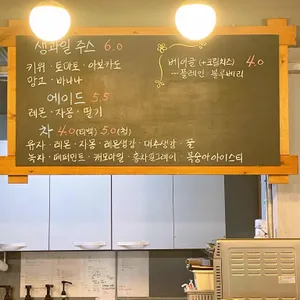 생과일 주스 6.0
키위 · 토마토 · 아보카도
망고 · 바나나
에이드 5.5
레몬 · 자몽 · 딸기
차 4.0 (티백) 5.0 (청)
유자 · 레몬 · 자몽 · 레몬생강 · 대추생강 · 꿀
녹차 · 페퍼민트 · 캐모마일 · 홍차얼그레이 · 복숭아아이스티
베이글 (+크림치즈) 4.0
플레인 블루베리